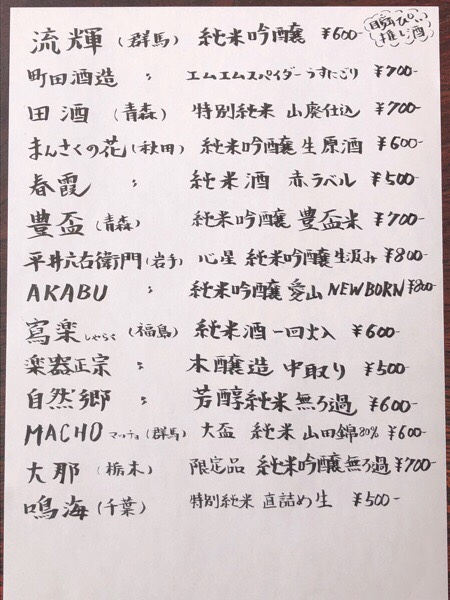 推し酒
流輝（群馬） 純米吟醸 ¥600-
町田酒造 〃 エムエムスパイダーうすにごり ¥700-
田酒（青森） 特別純米 山廃仕込 ¥700-
まんさくの花（秋田） 純米吟醸 生原酒 ¥600-
春霞 〃 純米酒 赤ラベル ¥500-
豊盃（青森） 純米吟醸 豊盃米 ¥700-
平井六右衛門（岩手） 心星 純米吟醸生汲み ¥800-
AKABU 〃 純米吟醸 愛山 NEWBORN ¥800-
寫楽 しゃらく（福島） 純米酒 一回火入 ¥600-
楽器正宗 〃 本醸造 中取り ¥500-
自然郷 〃 芳醇純米 無ろ過 ¥600-
MACHO マッチョ（群馬） 大盃 純米 山田錦80% ¥600-
大那（栃木） 限定品 純米吟醸無ろ過 ¥700-
鳴海（千葉） 特別純米 直詰め生 ¥500-